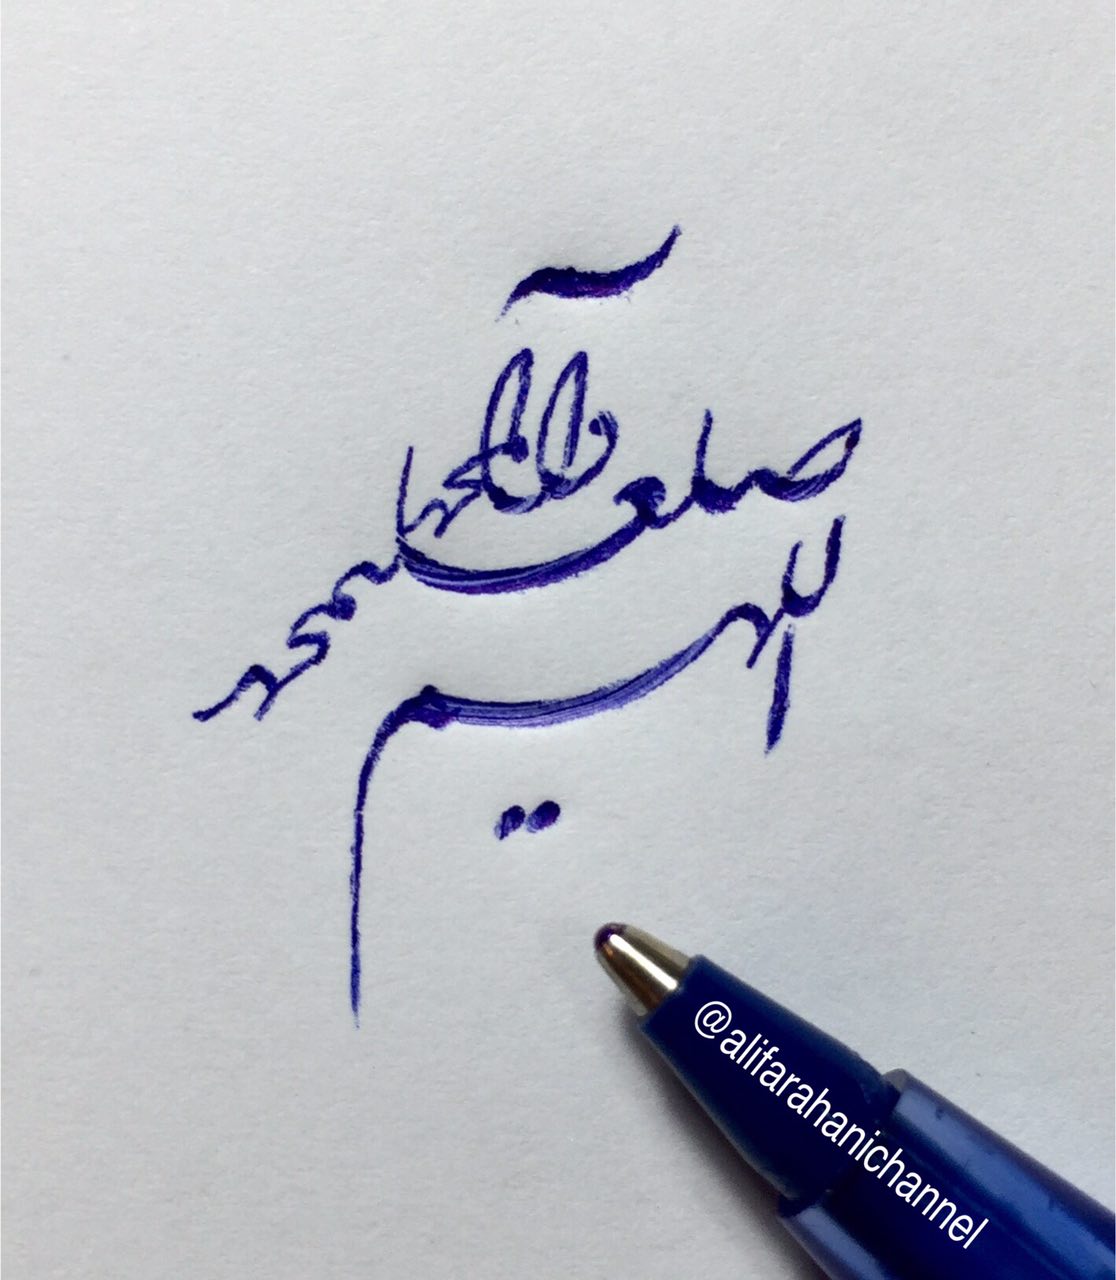 اللهم
صل علی محمد
و آل محمد
@alifarahanichannel